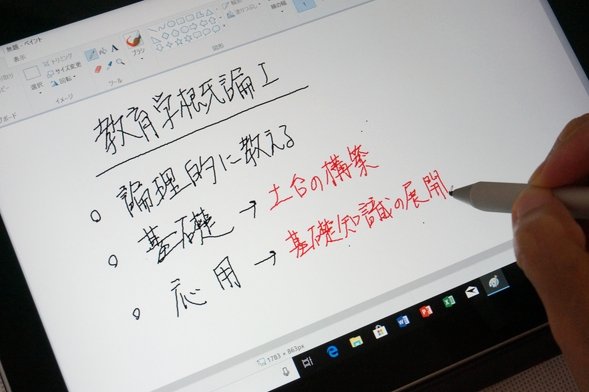 無題 - ペイント
表示
トリミング
サイズ変更
回転
選択
イメージ
ツール
ブラシ
図形
教育学根氏論I
論理的に教える
基礎 → 土台の構築
応用 → 基礎知識の展開
1783 × 863px